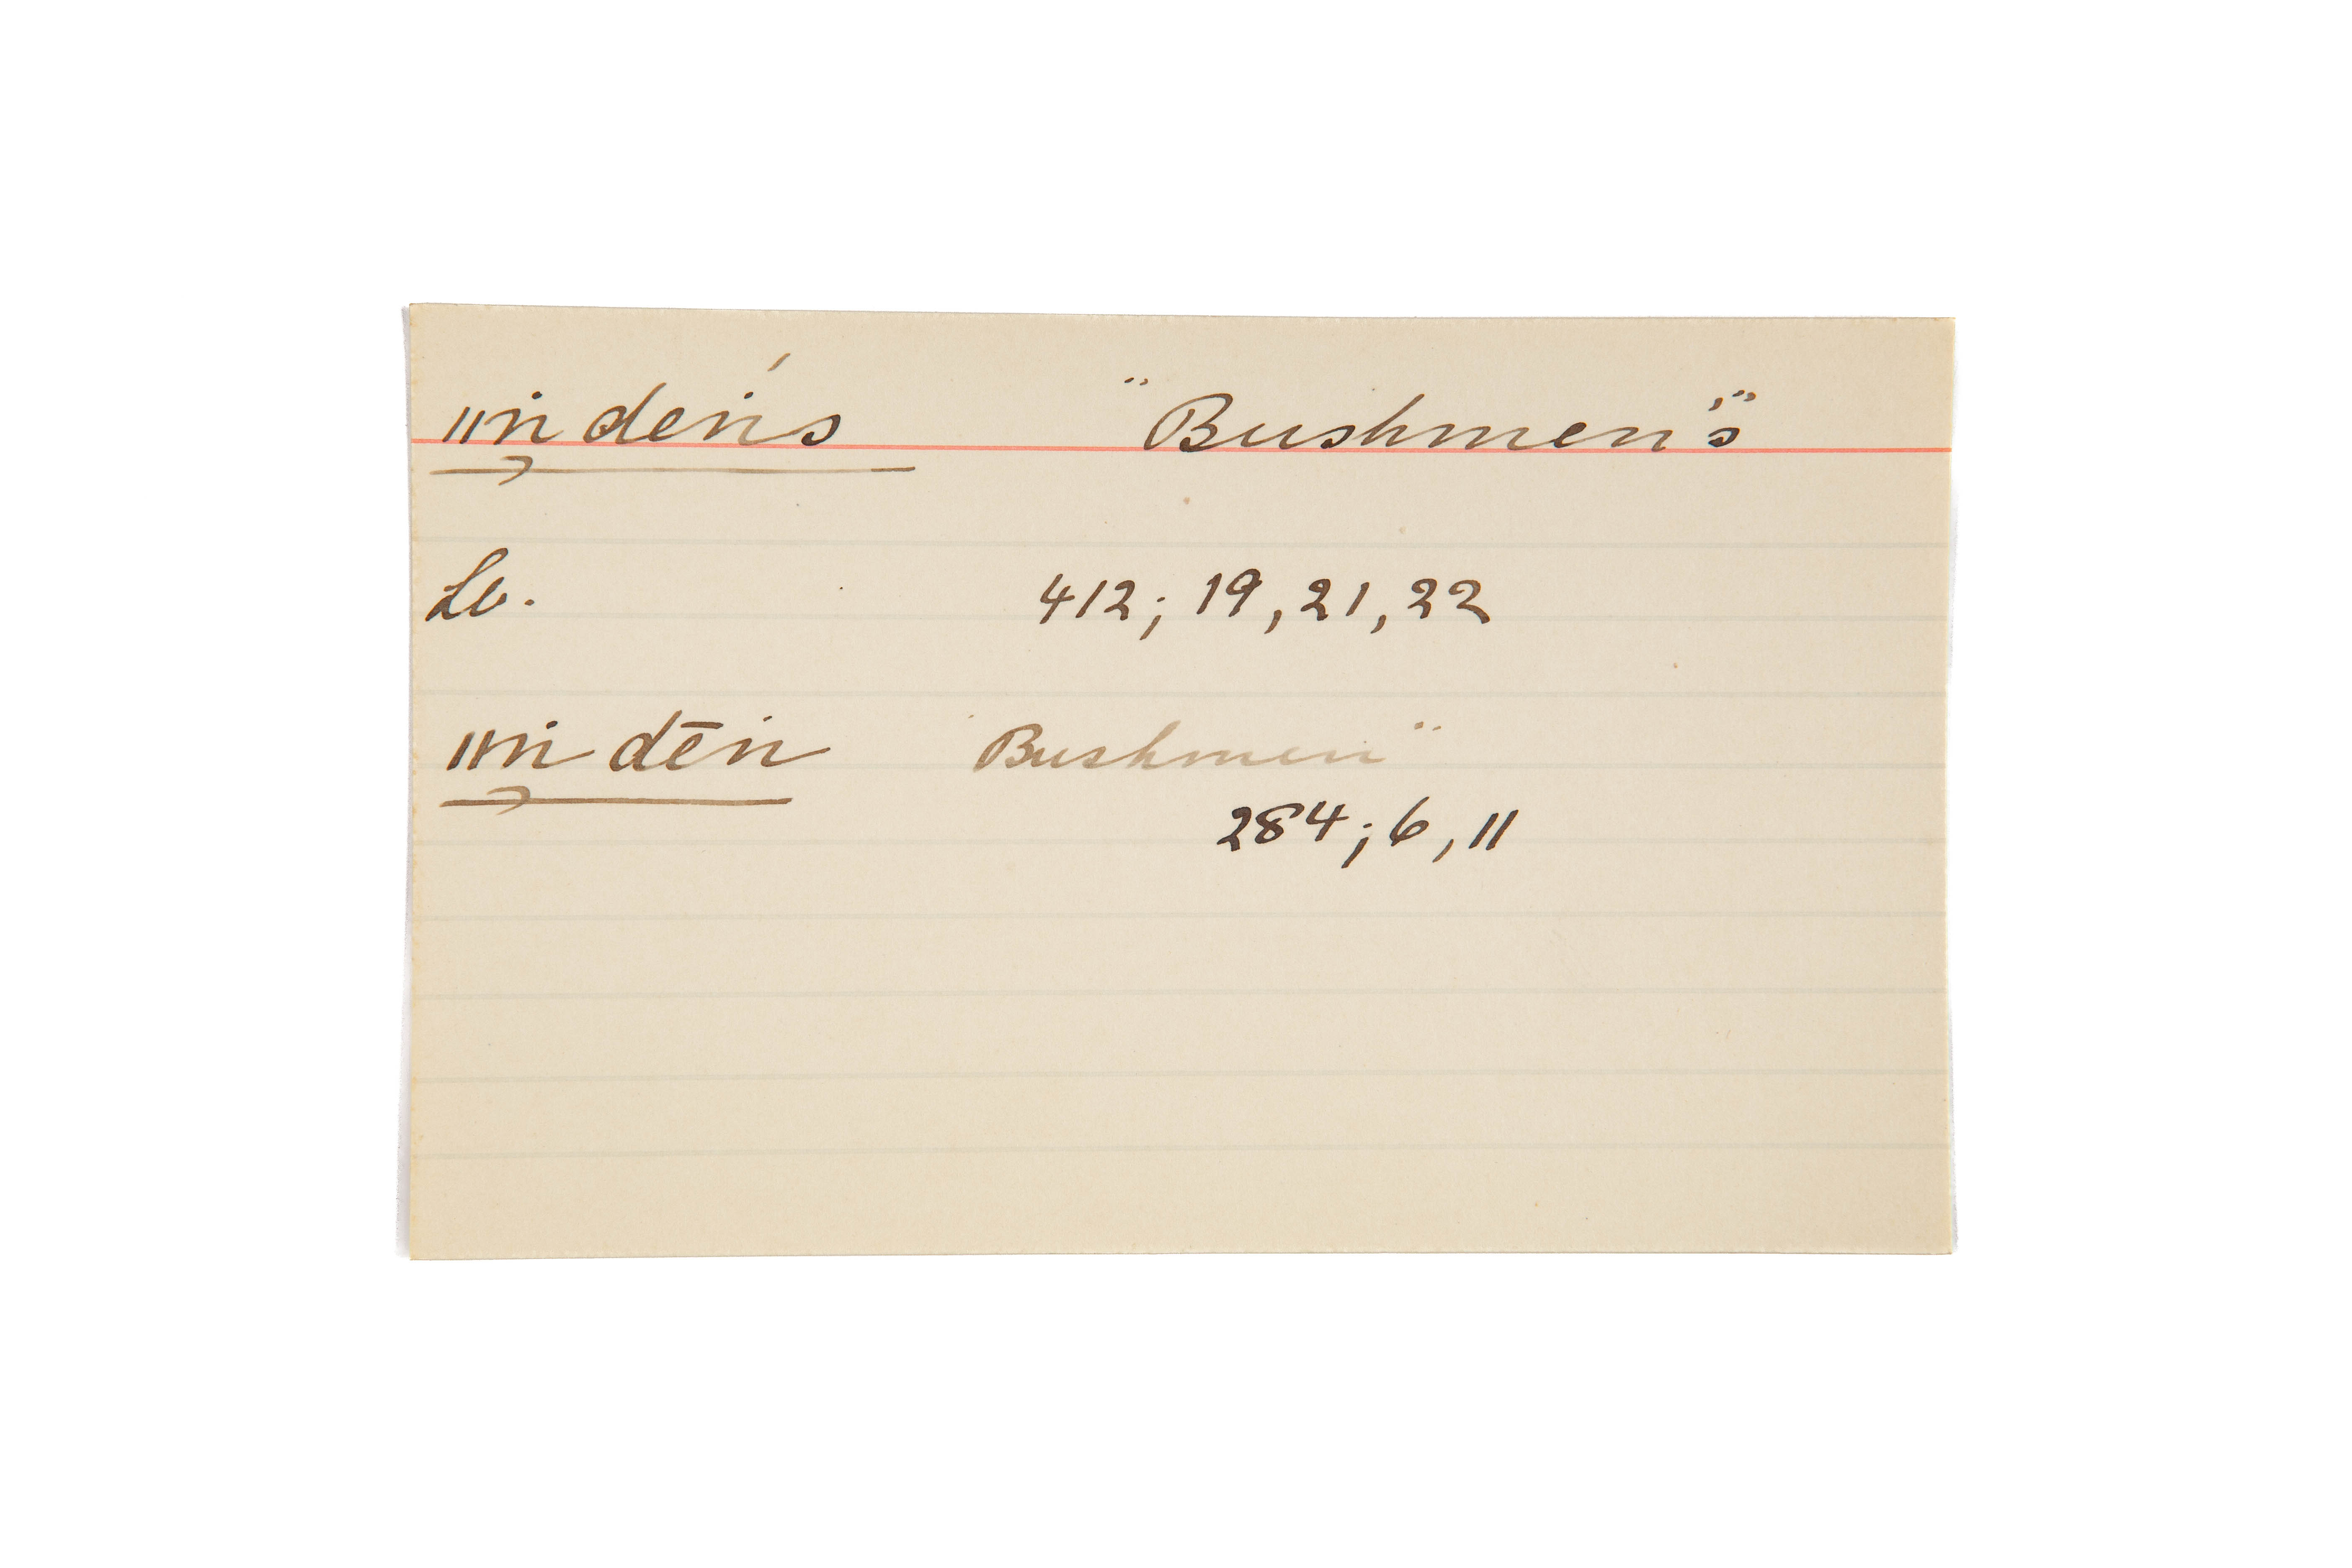 ǁṅ deṅ's "Bushmen's"
Lb. 412; 19, 21, 22
ǁṅ dēṅ Bushmen"
284; 6, 11